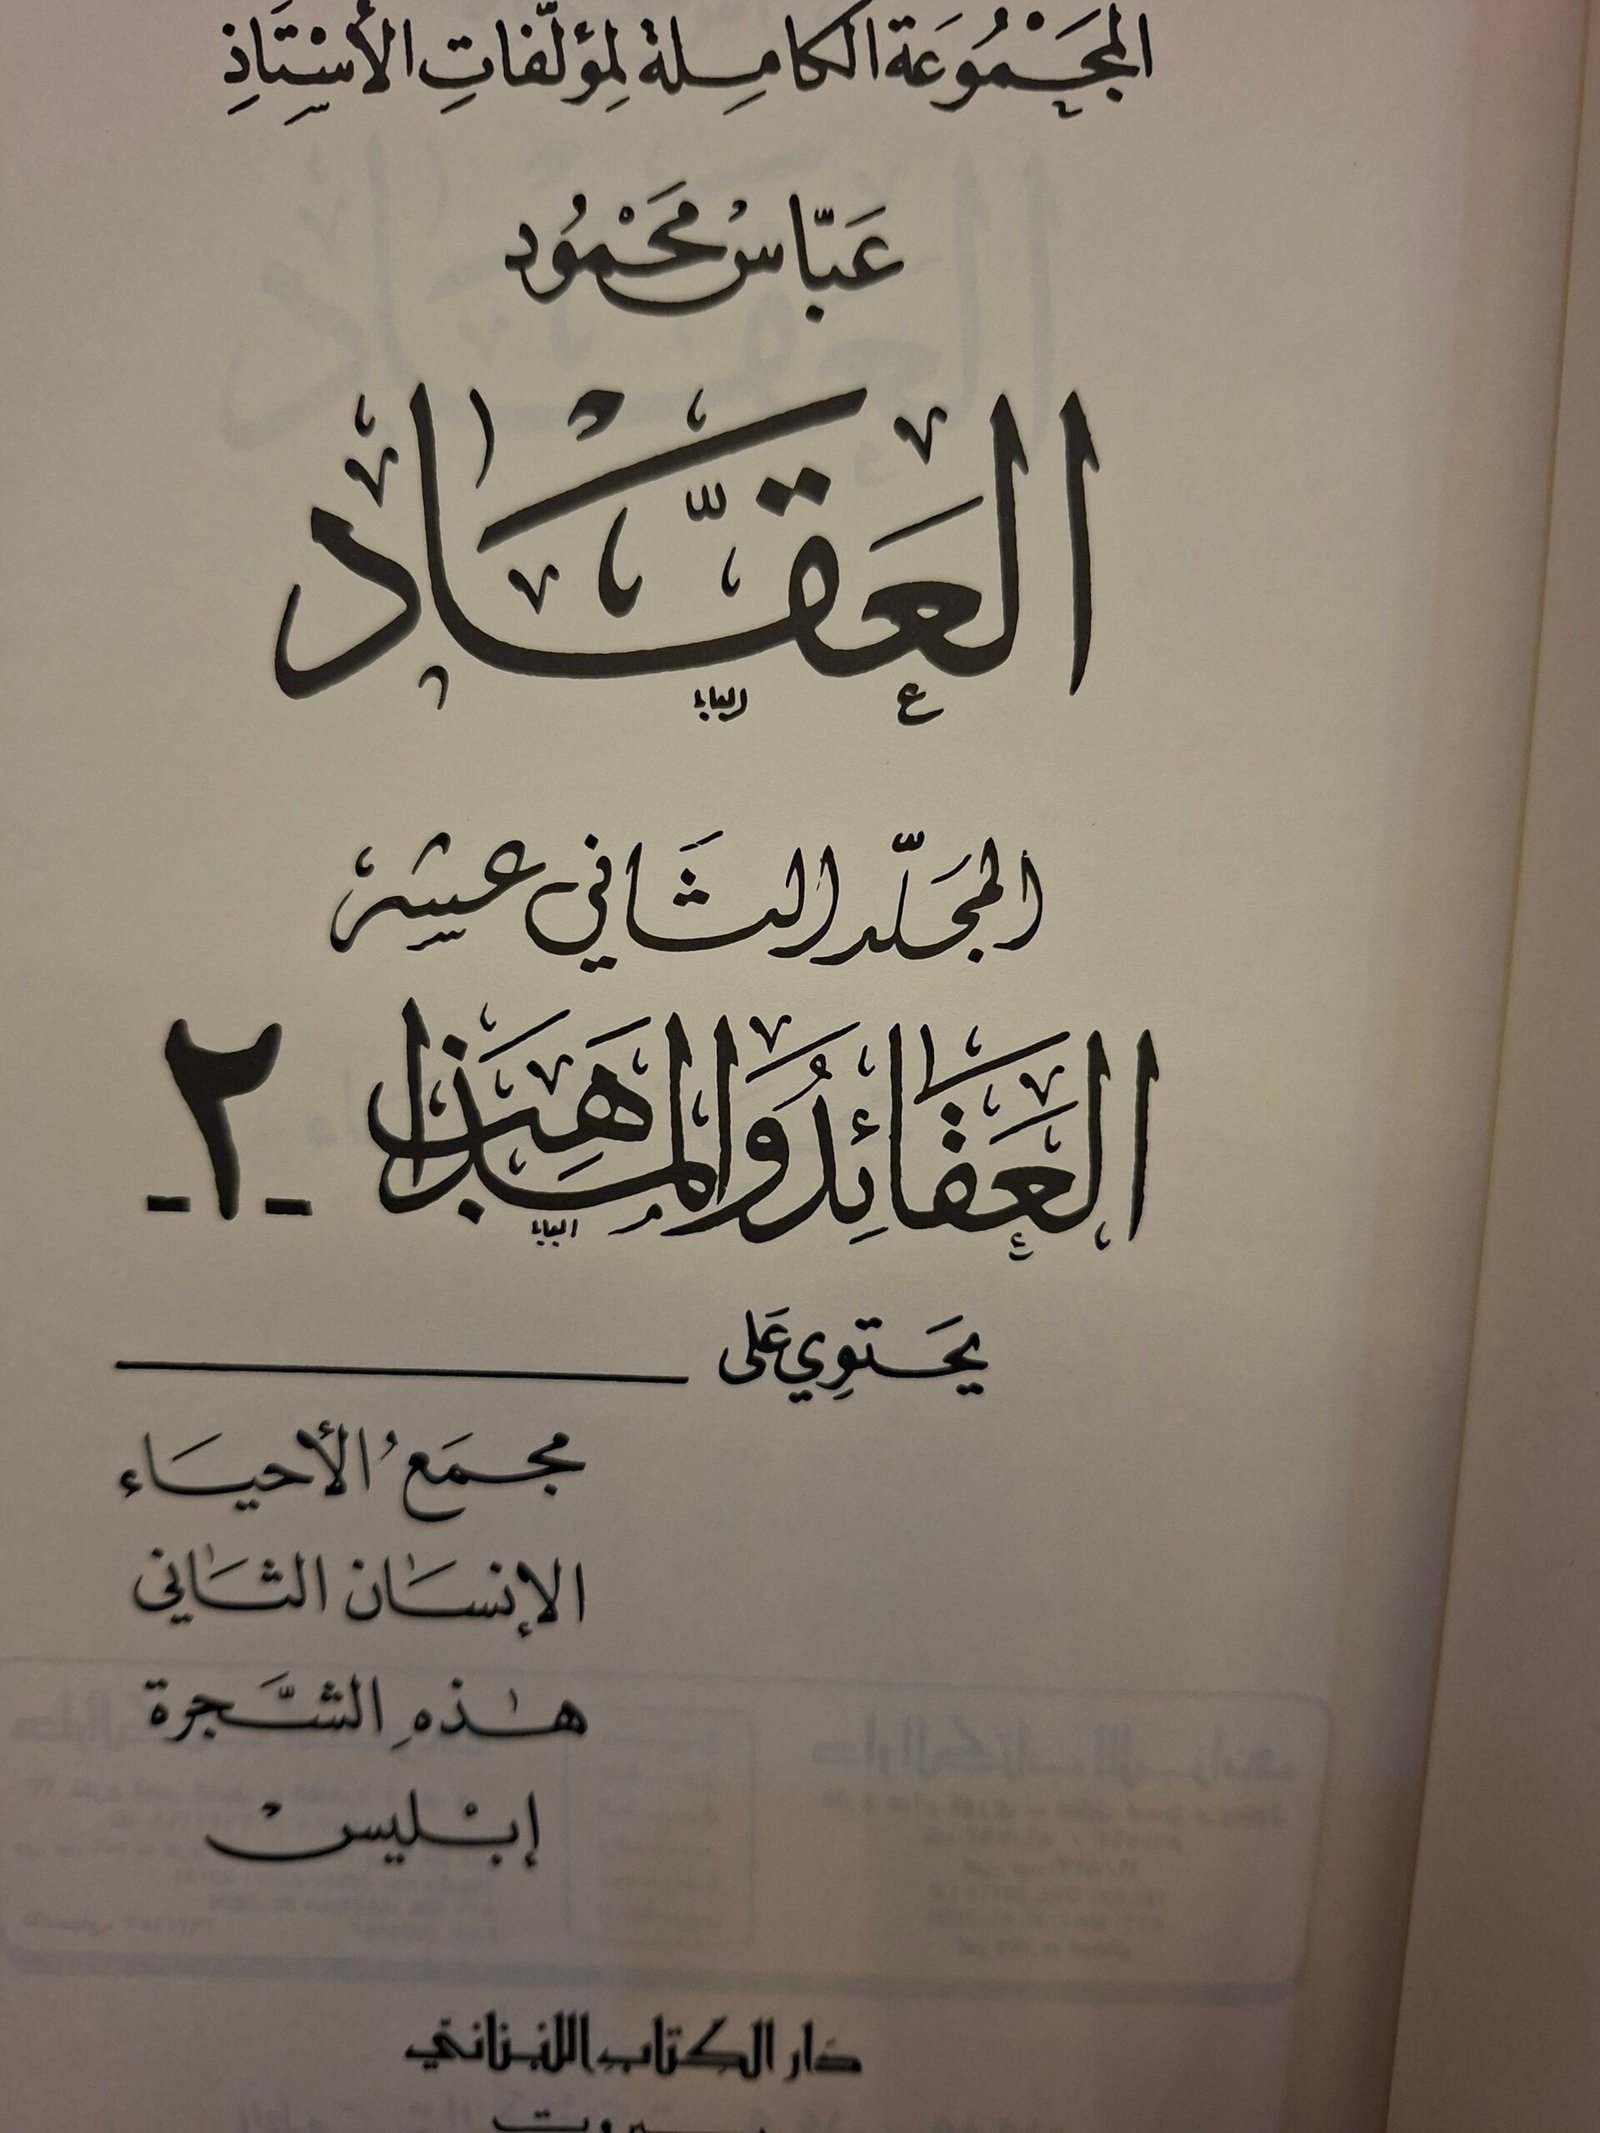 المَجْمُوعَة الكامِلة لمؤلّفاتِ الأسْتَاذِ
عَبّاسْ محَمْوُد
العَقَّاد
المجَلّد الثَاني عَشِر
العَقائِدُ وَالمذَاهِبْ -٢-
يَحتَوِي عَلى
مجمَعُ الأحيَاء
الإنسَان الثَاني
هٰذهِ الشَّجرة
إبْليسْ
دَار الكتاب اللبناني
بيروت